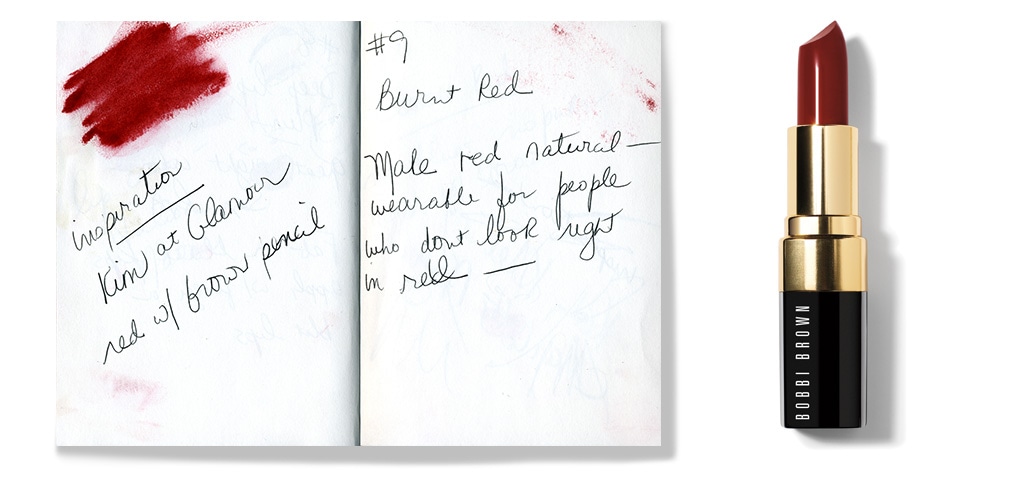 inspiration
Kim at Glamour
red w/ brown pencil
#9
Burnt Red
Make red natural —
wearable for people
who dont look right
in red —
BOBBI BROWN